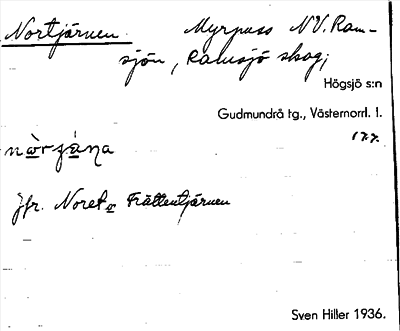 Nortjärnen. Myrpuss NV. Ram-
sjön, Ramsjö skog;
Högsjö s:n
Gudmundrå tg., Västernorrl. l.
177.
Jfr. Noret o Frättentjärnen
Sven Hiller 1936.